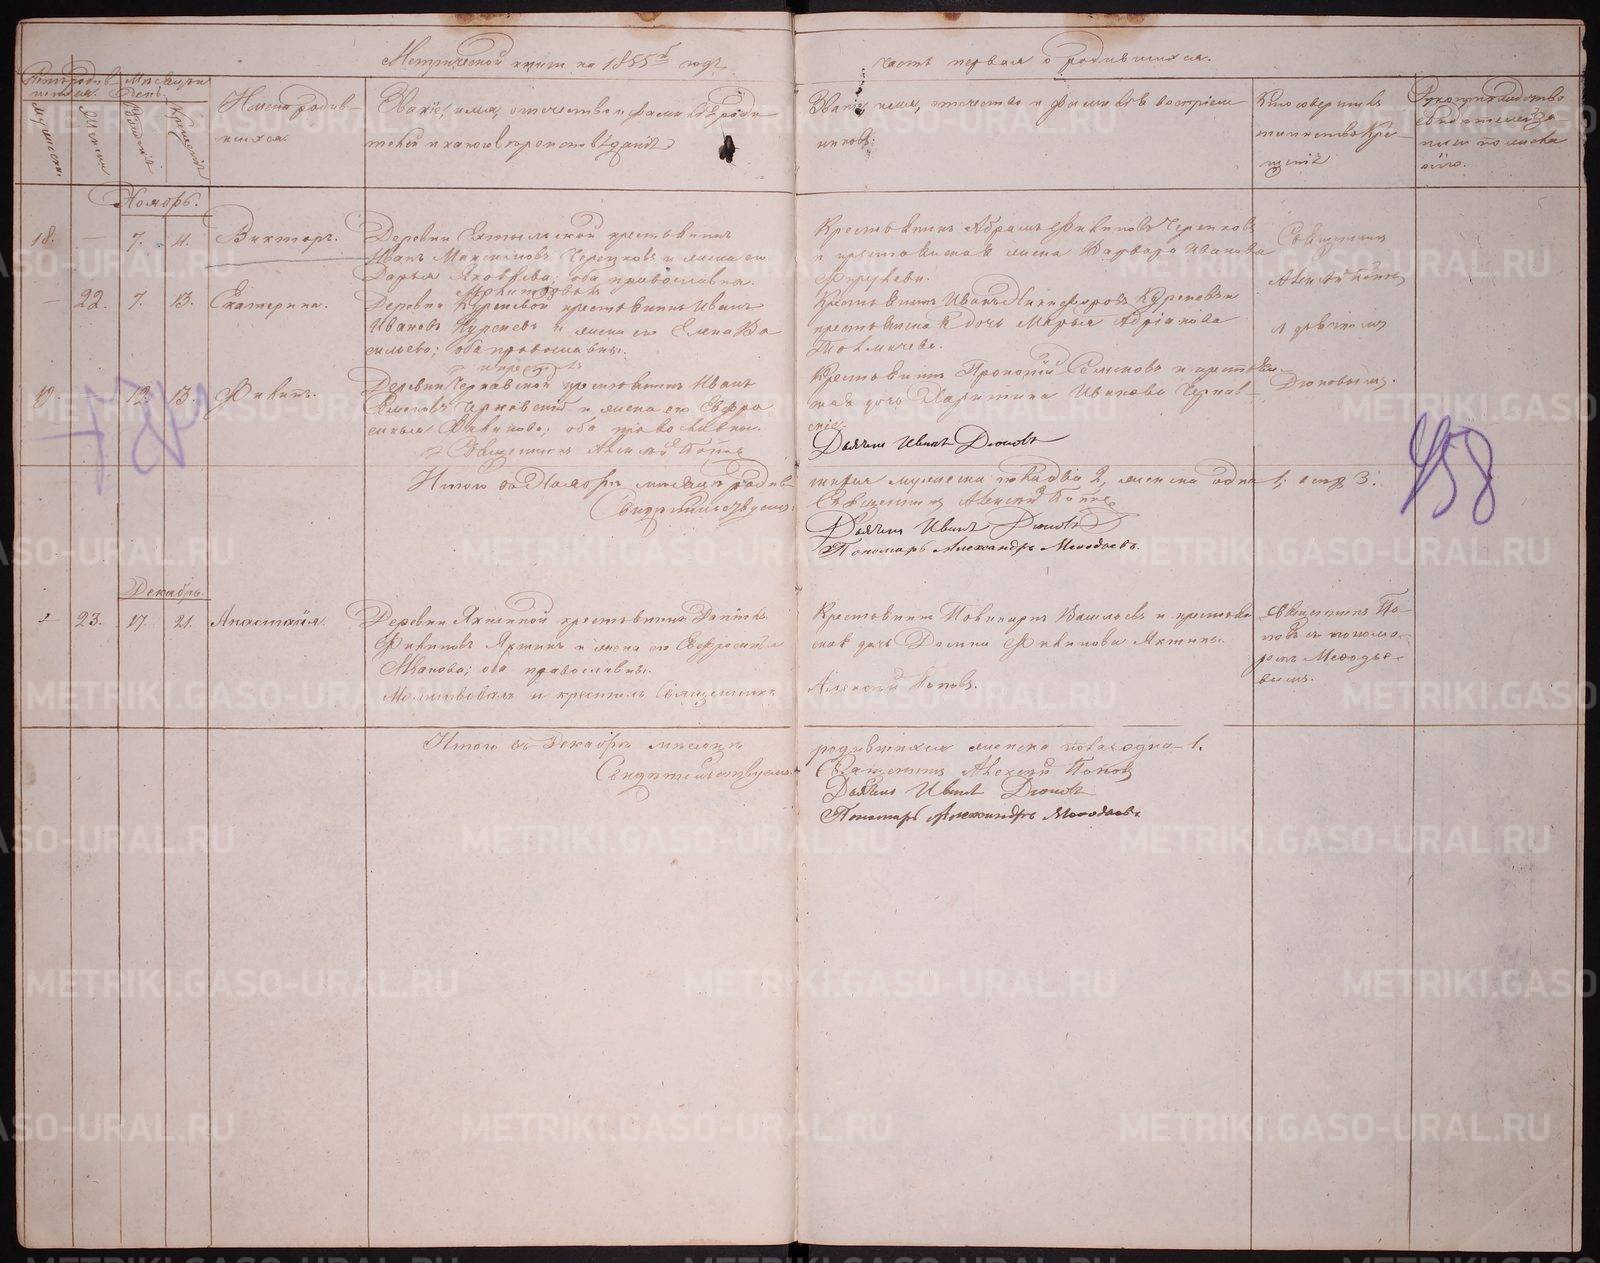 Метрической книги на 1855й годъ
часть первая о родившихся.
Мѣсяцъ и
День.
Мужеска.
Женска
Рожденія
Крещенія
Имена родив-
шихся.
Званіе, имя, отчество и фамилія роди
телей и какого вѣроисповѣданія
Званіе, имя, отчество и фамилія воспріем
никовъ.
Кто совершалъ
таинство Кре-
щенія
Рукоприкладство
свидѣтелей за
писи по жела
нію.
Ноябрь.
18. — 7. 11. Викторъ.
Деревни крестьянинъ
Иванъ Максимовъ Черепковъ и жена его
Дарья Яковлева; оба православные.
Крестьянинъ Абрамъ Филиповъ Черепковъ
и крестьянская жена Варвара Иванова
Священникъ
Алексѣй Поповъ
— 22. 7. 13. Екатерина.
Молитвовалъ
Деревни Куреневой крестьянинъ Иванъ
Ивановъ Куреневъ и жена его Елена Ва
сильева; оба православные.
Крестьянинъ Иванъ Никифоровъ Куреневъ и
крестьянска дочь Марья Адріанова
Толмачева.
съ дьячкомъ
19. 12. 13. Филипъ.
и крестилъ
Деревни Чернавской крестьянинъ Иванъ
Семеновъ Чернавскій и жена его Евфро
синья Филипова; оба православные.
Священникъ Алексѣй Поповъ
Крестьянинъ Прокопій Семеновъ и крестьян-
ская дочь Харитина Иванова Чернав-
скіе.
Дюковымъ.
Дьячекъ Иванъ Дюковъ
457
458
Итого въ Ноябрѣ мѣсяцѣ родив-
шихся мужеска пола два 2, женска одна 1, всего 3.
Свидѣтельствуемъ:
Священникъ Алексѣй Поповъ
Дьячекъ Иванъ Дюковъ
Пономарь Александръ Меѳодьевъ.
Декабрь.
23. 17. 21. Анастасія.
Деревни крестьянинъ
Филиповъ Яхтинъ и жена его Евфросинья
Иванова; оба православные.
Молитвовалъ и крестилъ Священникъ
Крестьянинъ Васильевъ и крестьян
ская дочь Домна Филипова Яхтины.
Алексѣй Поповъ.
Священникъ По-
повъ съ понома-
ремъ Меѳодье-
вымъ.
Итого въ Декабрѣ мѣсяцѣ
родившихся женска пола одна — 1.
Свидѣтельствуемъ:
Священникъ Алексѣй Поповъ
Дьячекъ Иванъ Дюковъ
Пономарь Александръ Меѳодьевъ.
METRIKI.GASO-URAL.RU